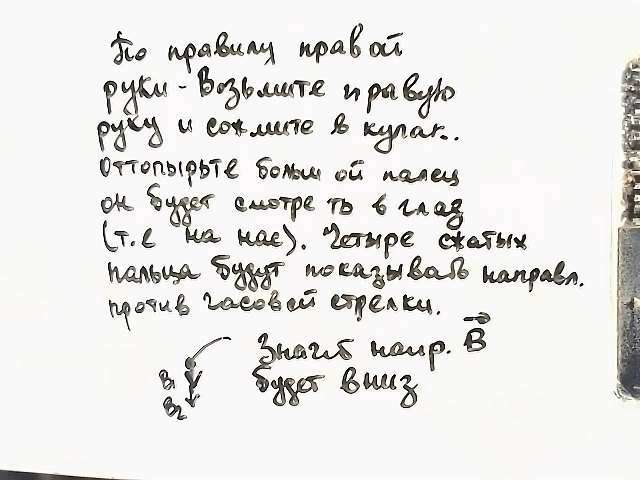 По правилу правой
руки - Возьмите правую
руку и сожмите в кулак..
Оттопырьте больш ой палец
он будет смотре ть в глаз
(т.е на нас). Четыре сжатых
пальца будут показывать направл.
против часовой стрелки.
Значит напр. B
B1 будет вниз
B2